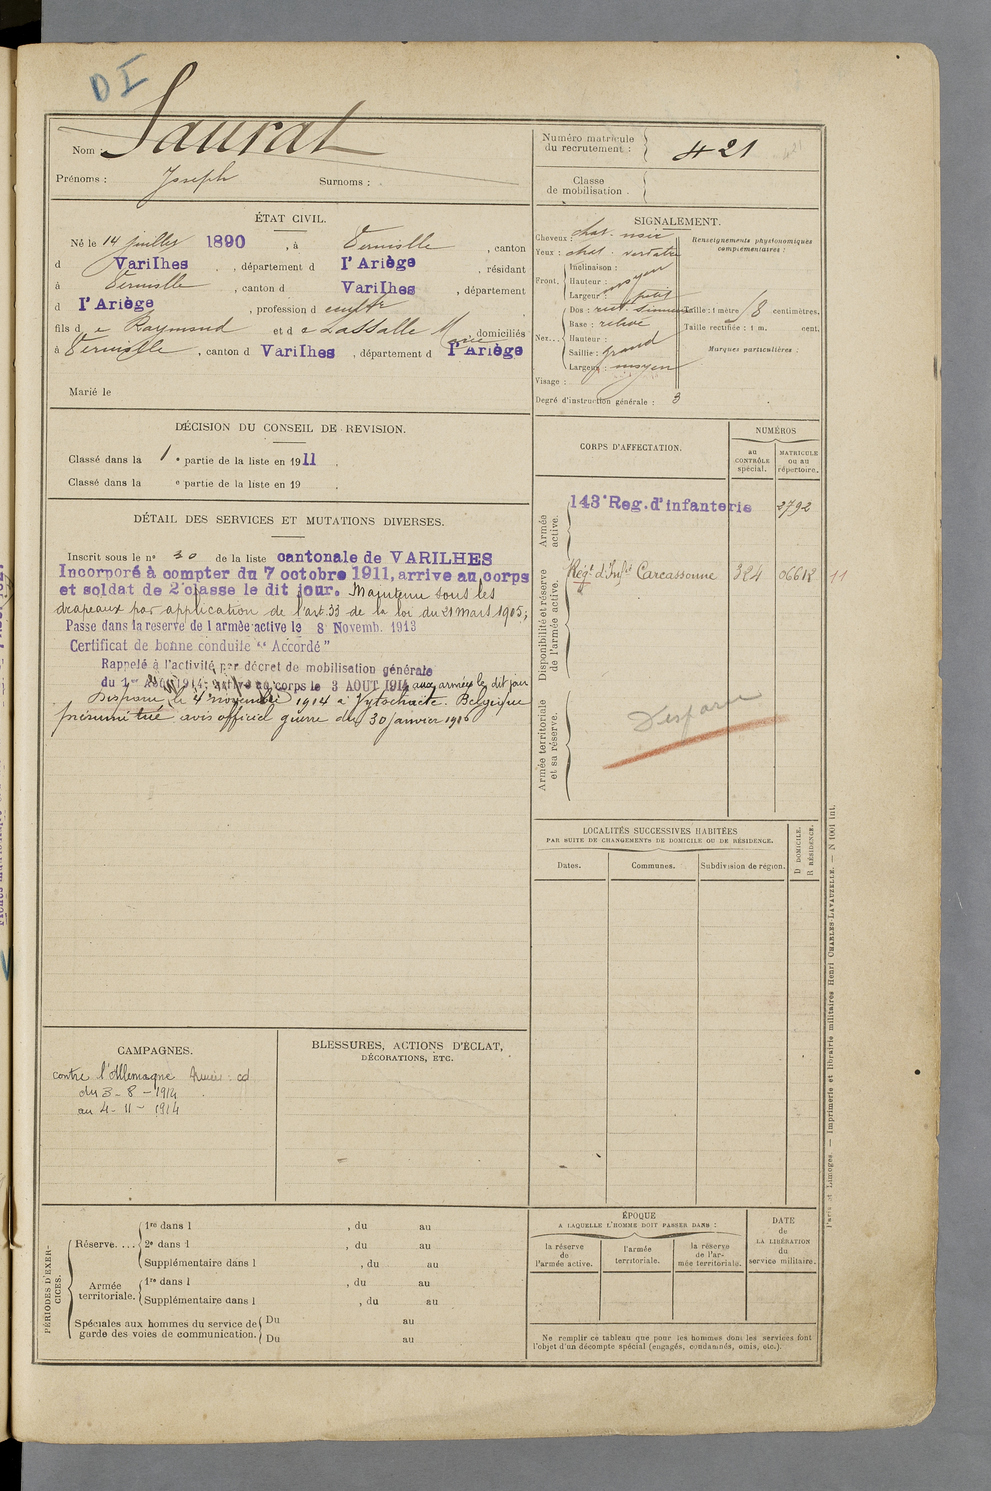 D I
Nom : Saurat
Prénoms : Joseph Surnoms :
Numéro matricule
du recrutement : 421
421
Classe
de mobilisation .
ÉTAT CIVIL.
Né le 14 juillet 1890 , à Verniolle , canton
d Varilhes , département d l'Ariège , résidant
à Verniolle , canton d Varilhes , département
d l'Ariège , profession d cultr
fils d e Raymond et d e Lassalle Marie domiciliés
à Verniolle , canton d Varilhes , département d l'Ariège
Marié le
SIGNALEMENT.
Cheveux : chat. noir
Yeux : chat. verdatre
Front. Inclinaison :
Hauteur : moyen
Largeur : petit
Nez... Dos : rect. sinueux
Base : relevé
Hauteur :
Saillie : grand
Largeur : moyen
Visage :
Degré d'instruction générale : 3
Renseignements physionomiques
complémentaires :
Taille : 1 mètre 58 centimètres.
Taille rectifiée : 1 m. cent.
Marques particulières :
DÉCISION DU CONSEIL DE REVISION.
Classé dans la 1 e partie de la liste en 1911 .
Classé dans la e partie de la liste en 19 .
DÉTAIL DES SERVICES ET MUTATIONS DIVERSES.
Inscrit sous le n° 30 de la liste cantonale de VARILHES
Incorporé à compter du 7 octobre 1911, arrive au corps
et soldat de 2e classe le dit jour. Maintenu sous les
drapeaux par application de l'art. 33 de la loi du 21 mars 1905;
Passe dans la reserve de l armée active le 8 Novemb. 1913
Certificat de bonne conduite "Accordé"
Rappelé à l'activité par décret de mobilisation générale
du 1er Août 1914; arrivé au corps le 3 AOUT 1914 aux armées le dit jour
Disparu le 4 novembre 1914 à Vytschaete. Belgique
présumé tué avis officiel guerre du 30 janvier 1916
CORPS D'AFFECTATION.
NUMÉROS
au
CONTRÔLE
spécial.
MATRICULE
ou au
répertoire.
Armée
active.
143e Reg. d'infanterie 2792
Disponibilité et réserve
de l'armée active.
Régt d'Infie Carcassonne 324 06612 11
Armée territoriale
et sa réserve.
Disparu
LOCALITÉS SUCCESSIVES HABITÉES
PAR SUITE DE CHANGEMENTS DE DOMICILE OU DE RÉSIDENCE.
Dates.
Communes.
Subdivision de région.
D DOMICILE.
R RÉSIDENCE.
CAMPAGNES.
contre l'Allemagne
du 3 - 8 - 1914
au 4 - 11 - 1914
BLESSURES, ACTIONS D'ÉCLAT,
DÉCORATIONS, ETC.
PÉRIODES D'EXER-
CICES.
Réserve. ... 1re dans l , du au
2e dans l , du au
Supplémentaire dans l , du au
Armée
territoriale. 1re dans l , du au
Supplémentaire dans l , du au
Spéciales aux hommes du service de
garde des voies de communication. Du au
Du au
ÉPOQUE
A LAQUELLE L'HOMME DOIT PASSER DANS :
la réserve
de
l'armée active.
l'armée
territoriale.
la réserve
de l'ar-
mée territoriale.
DATE
de
LA LIBÉRATION
du
service militaire.
Ne remplir ce tableau que pour les hommes dont les services font
l'objet d'un décompte spécial (engagés, condamnés, omis, etc.).
Paris et Limoges. — Imprimerie et librairie militaires Henri CHARLES-LAVAUZELLE. — N 1001 int.